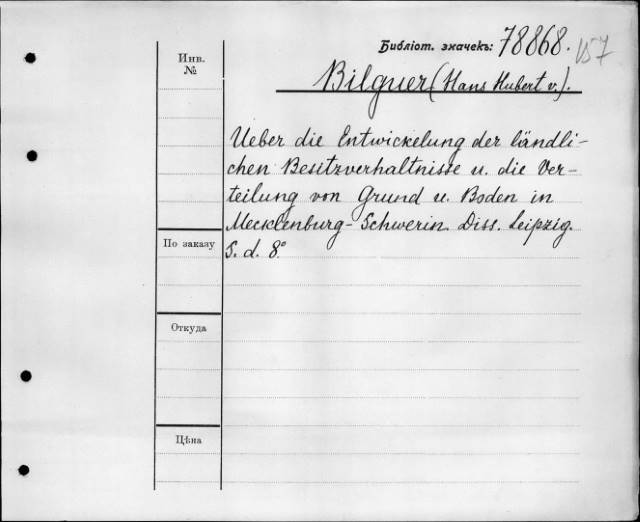 Библіот. значекъ: 78868. 157
Инв. №
Bilguer (Hans Hubert v.).
Ueber die Entwickelung der ländli-
chen Besitzverhältnisse u. die Ver-
teilung von Grund u. Boden in
Mecklenburg-Schwerin. Diss. Leipzig.
S. d. 8°
По заказу
Откуда
Цѣна